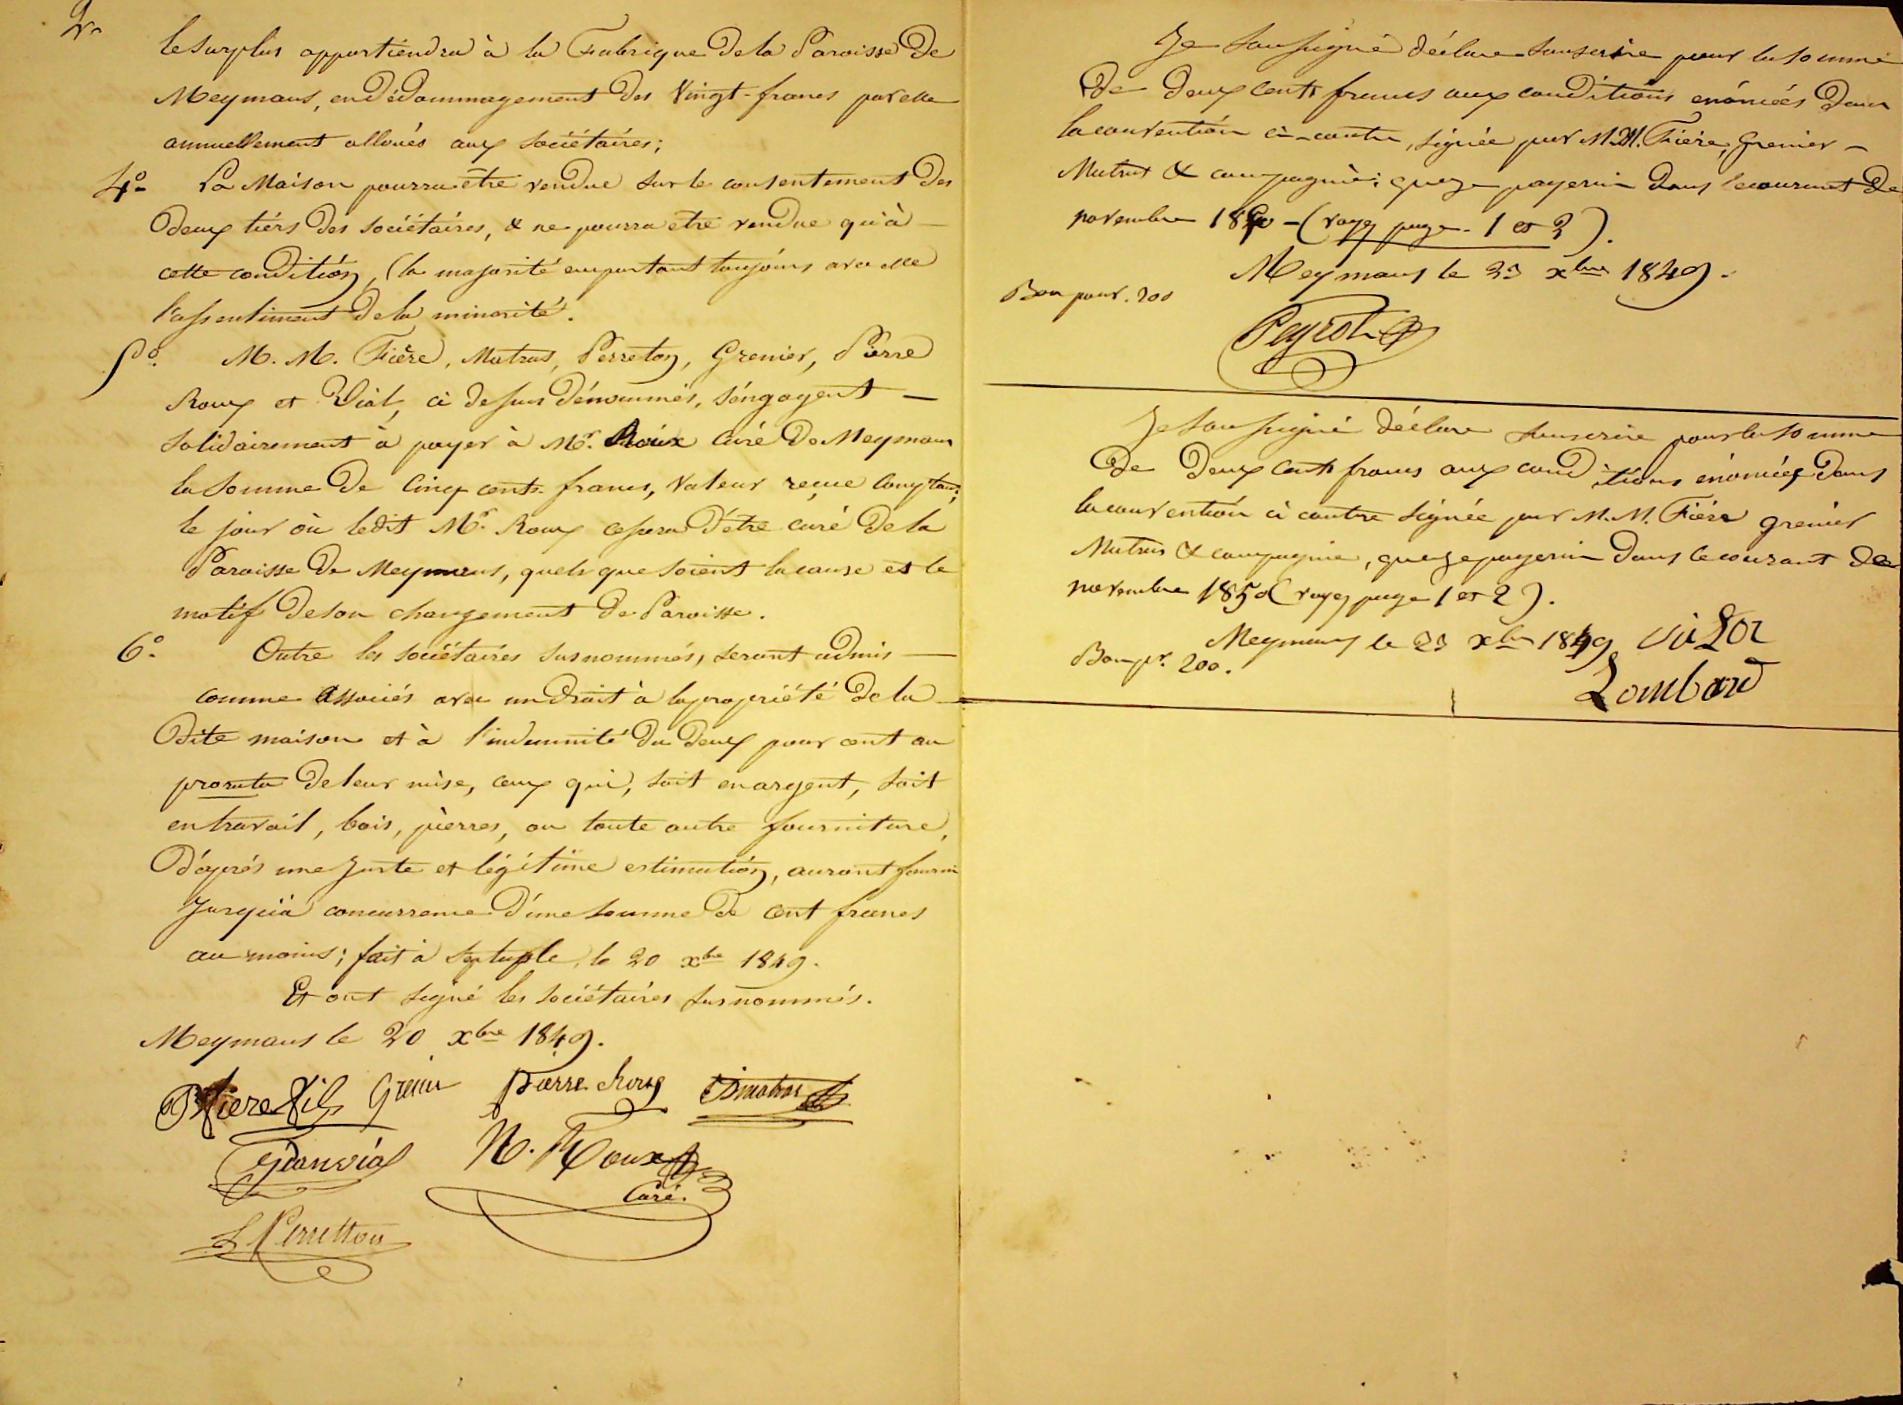 2.
le surplus appartiendra à la Fabrique de la Paroisse de
Meymans, en dédommagement des Vingt-francs par elle
annuellement alloués aux sociétaires;
4° La Maison pourra être vendue sur le consentement des
deux tiers des sociétaires, & ne pourra être vendue qu'à
cette condition, (la majorité emportant toujours avec elle
l'assentiment de la minorité.
5° M. M. Fière, Matras, Perreton, Grenier, Pierre
Roux et Vial, ci dessus dénommés, s'engagent
solidairement à payer à Mr. Roux Curé de Meymans
la somme de Cinq cents francs, valeur reçue comptant,
le jour où ledit Mr. Roux cessera d'être curé de la
Paroisse de Meymans, quels que soient la cause et le
motif de son changement de Paroisse.
6° Outre les sociétaires susnommés, seront admis
comme associés avec un droit à la propriété de la
dite maison et à l'indemnité du deux pour cent au
prorata de leur mise, ceux qui, soit en argent, soit
en travail, bois, pierres, ou toute autre fourniture,
d'après une juste et légitime estimation, auront fourni
jusqu'à concurrence d'une somme de cent francs
au moins; fait à septuple, le 20 xbre 1849.
Et ont signé les sociétaires susnommés.
Meymans le 20 xbre 1849.
Fiere fils Grenier Pierre Roux Matras
Jean vial N. Roux
Curé.
L Perretton
Je soussigné déclare souscrire pour la somme
de deux cents francs aux conditions énoncées dans
la convention ci-contre, signée par M.M. Fière, Grenier
Matras & compagnie; que je payerai dans le courant de
novembre 1850 - (voyez page 1 et 2).
Meymans le 23 xbre 1849.
Bon pour 200
Peyrot
Je soussigné déclare souscrire pour la somme
de deux cents francs aux conditions énoncées dans
la convention ci contre signée par M. M. Fière grenier
Matras & compagnie, que je payerai dans le courant de
novembre 1850 (voyez page 1 et 2).
Meymans le 23 xbre 1849. victor
Bon pr. 200.
Lombard